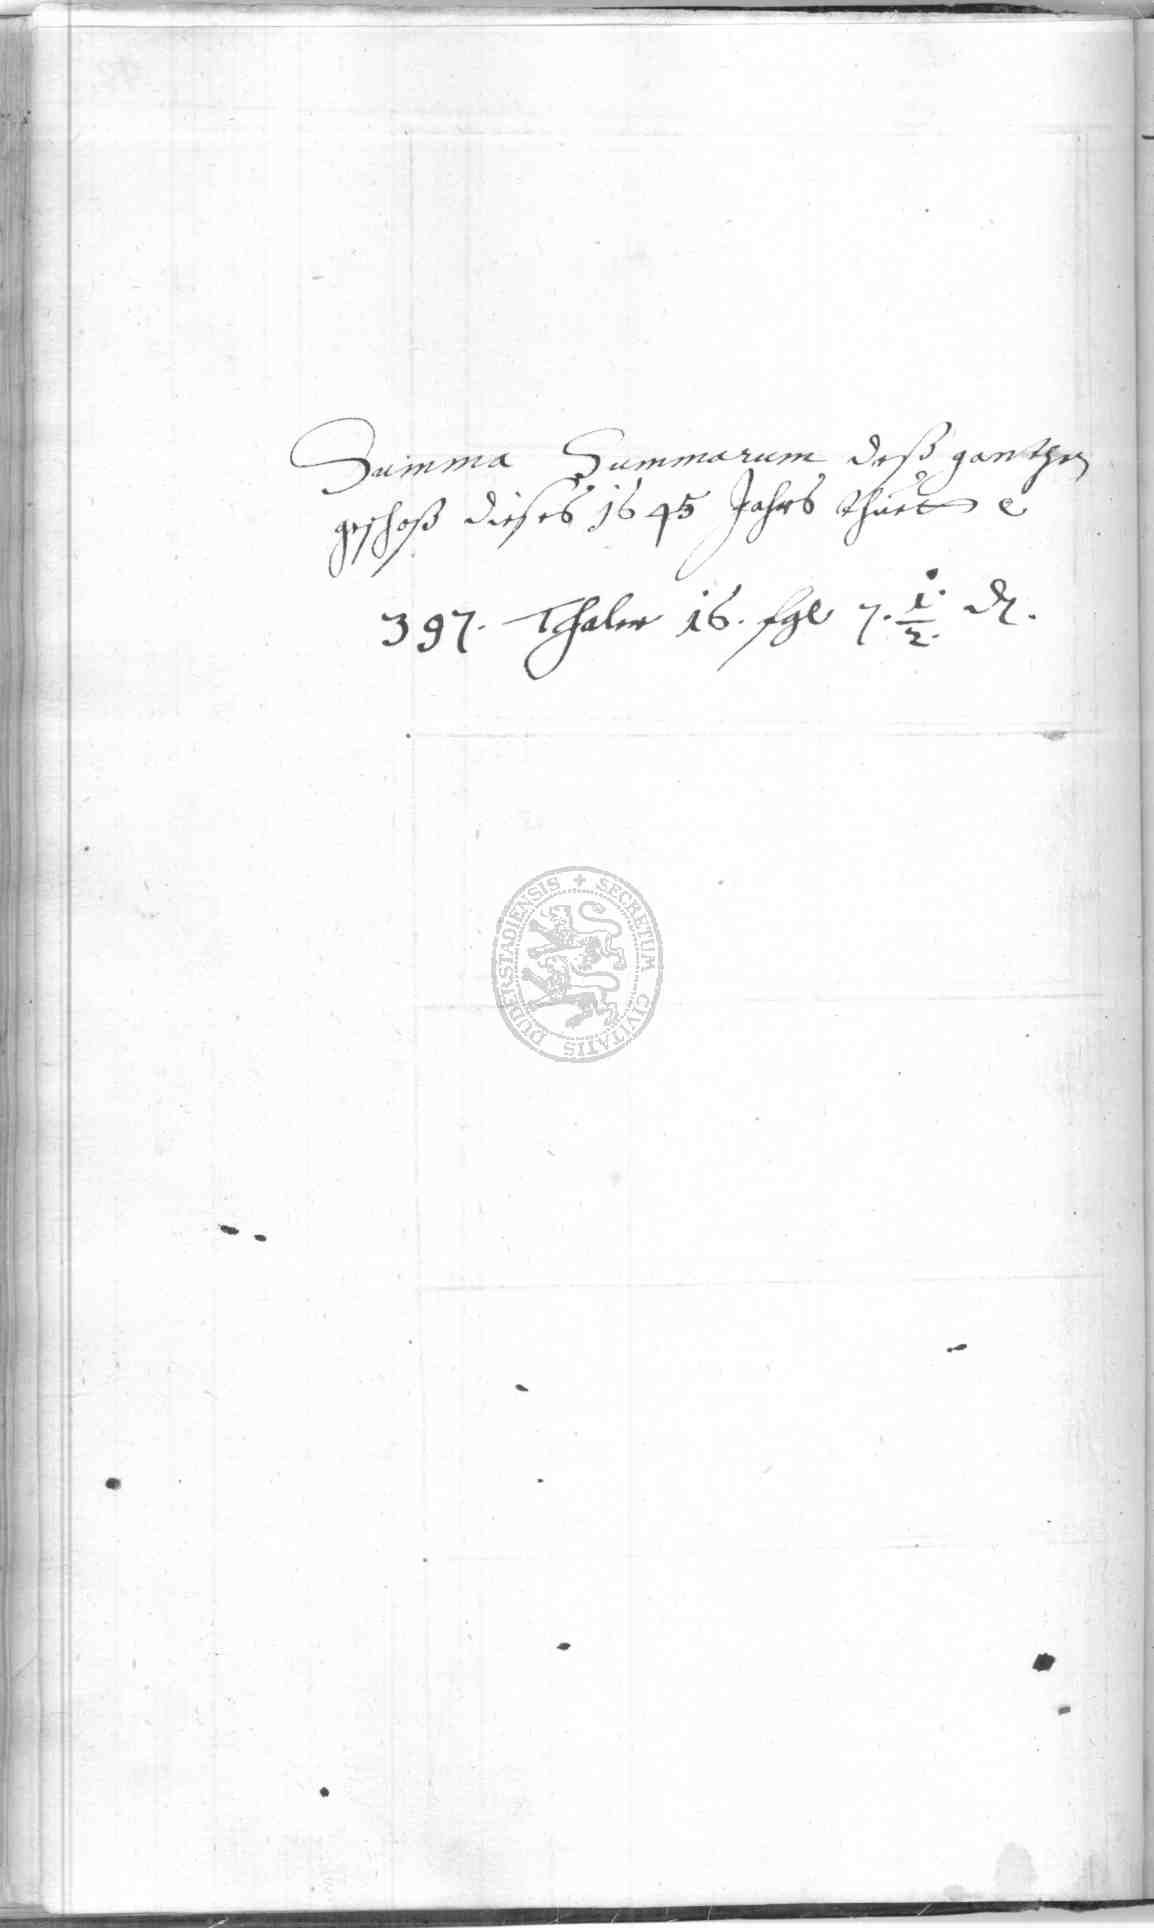 Summa Summarum deß gantzen
geschoß dieses 1645 Jahrs thuet
397. Thaler 16. sgl 7. 1/2. d.
SECRETUM CIVITATIS DUDERSTADIENSIS